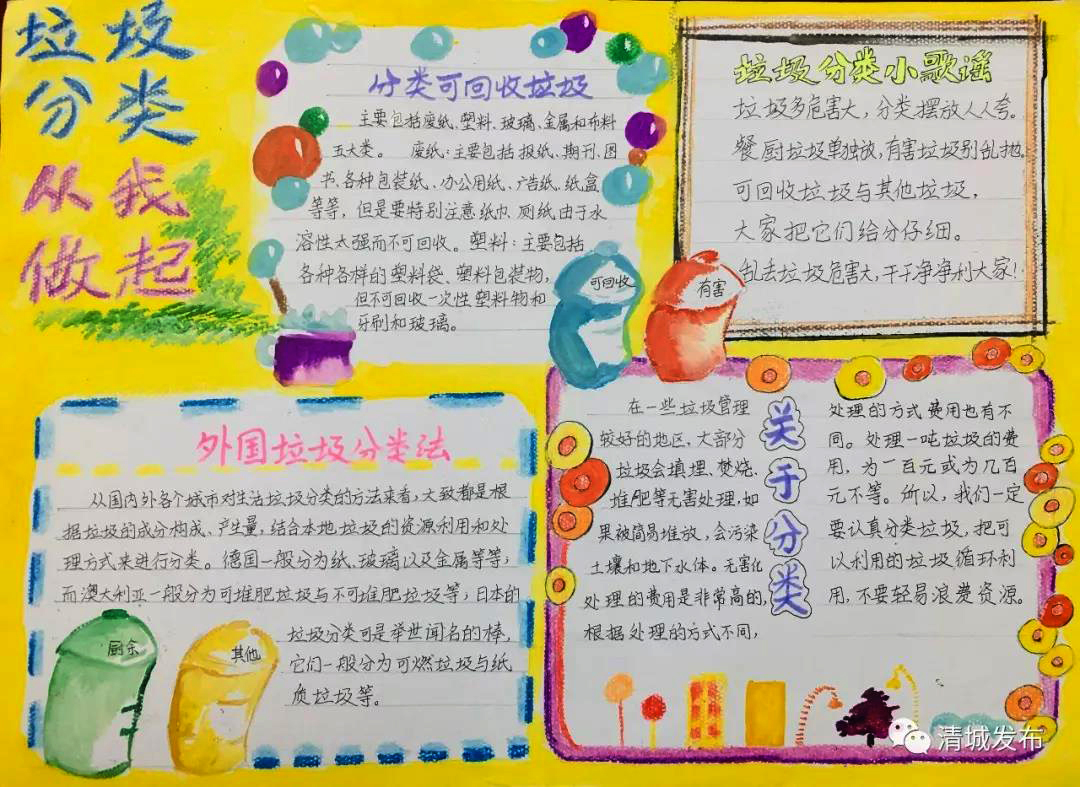 垃圾
分类
从我
做起
分类可回收垃圾
主要包括废纸、塑料、玻璃、金属和布料
五大类。 废纸:主要包括报纸、期刊、图
书、各种包装纸、办公用纸、广告纸、纸盒
等等,但是要特别注意纸巾、厕纸由于水
溶性太强而不可回收。塑料:主要包括
各种各样的塑料袋、塑料包装物,
但不可回收一次性塑料物和
牙刷和玻璃。
垃圾分类小歌谣
垃圾多危害大,分类摆放人人夸。
餐厨垃圾单独放,有害垃圾别乱抛。
可回收垃圾与其他垃圾,
大家把它们给分仔细。
乱丢垃圾危害大,干干净净利大家!
可回收
有害
外国垃圾分类法
从国内外各个城市对生活垃圾分类的方法来看,大致都是根
据垃圾的成分构成、产生量,结合本地垃圾的资源利用和处
理方式来进行分类。德国一般分为纸、玻璃以及金属等等;
而澳大利亚一般分为可堆肥垃圾与不可堆肥垃圾等;日本的
垃圾分类可是举世闻名的棒,
它们一般分为可燃垃圾与纸
质垃圾等。
厨余
其他
关于分类
在一些垃圾管理
较好的地区,大部分
垃圾会填埋、焚烧、
堆肥等无害处理,如
果被简易堆放,会污染
土壤和地下水体。无害化
处理的费用是非常高的,
根据处理的方式不同,
处理的方式费用也有不
同。处理一吨垃圾的费
用,为一百元或为几百
元不等。所以,我们一定
要认真分类垃圾,把可
以利用的垃圾循环利
用,不要轻易浪费资源。
清城发布